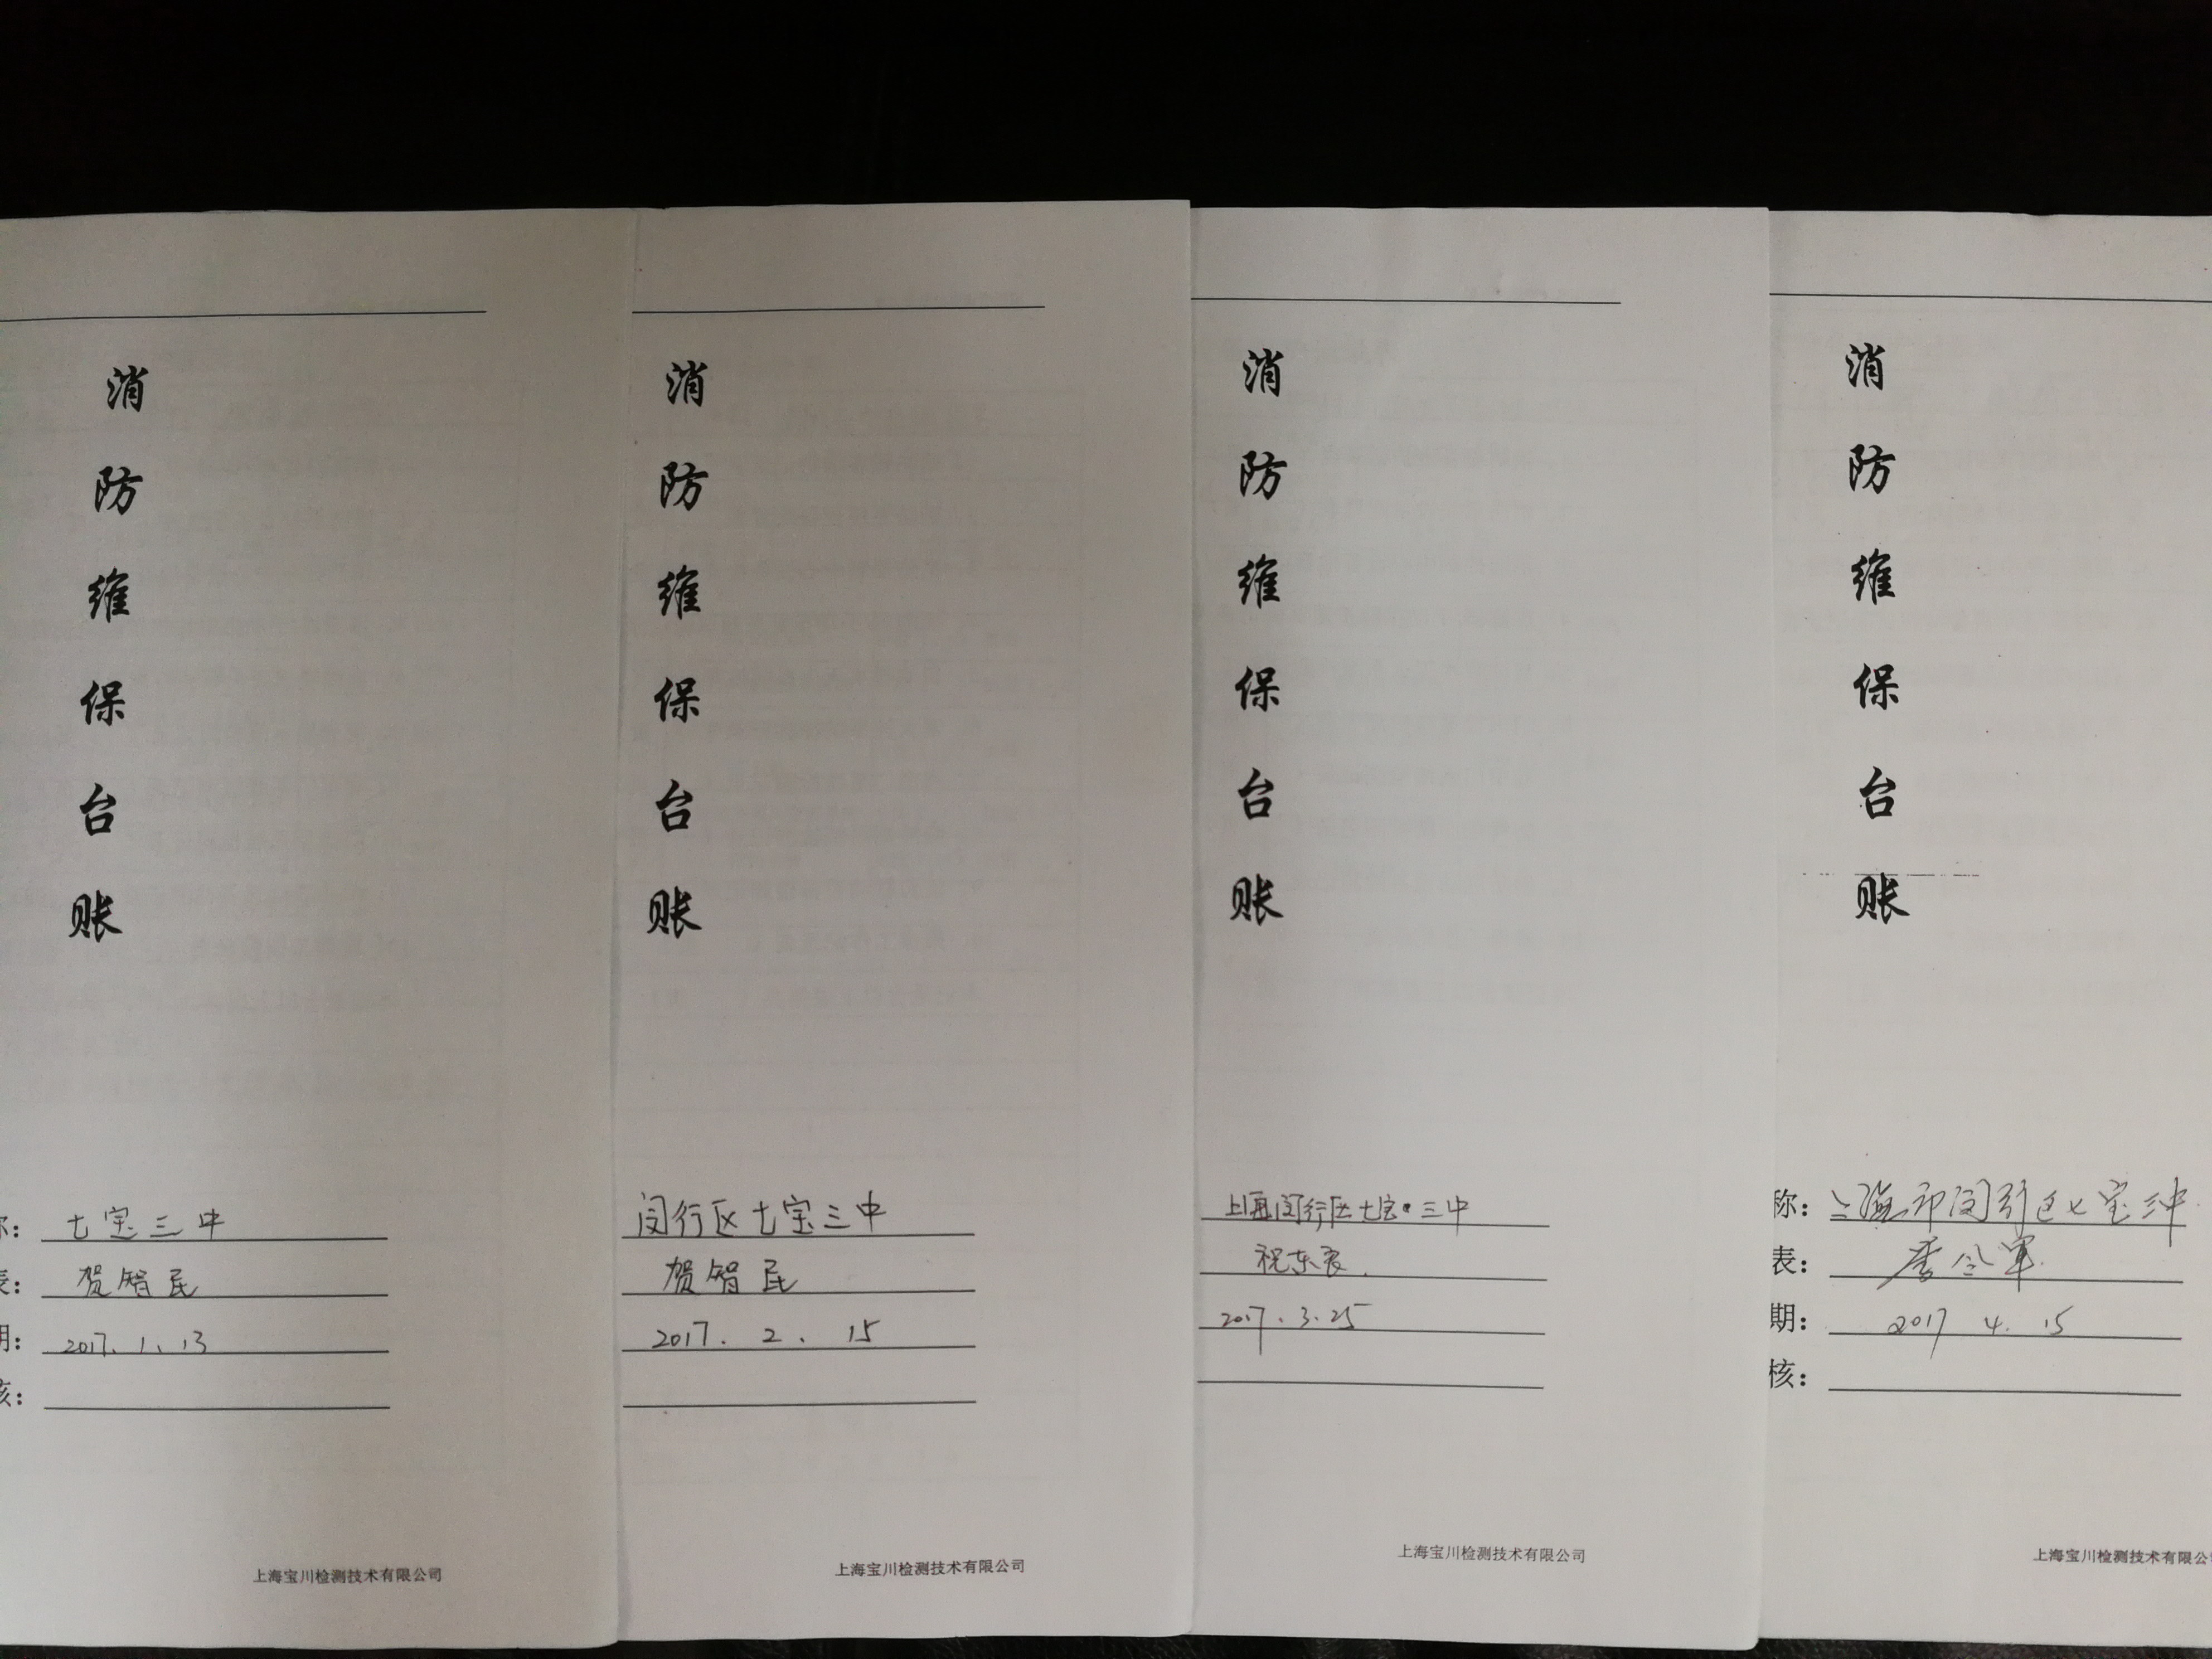 消
防
维
保
台
账
称：七宝三中
表：贺智民
期：2017.1.13
核：
上海宝川检测技术有限公司
消
防
维
保
台
账
闵行区七宝三中
贺智民
2017. 2. 15
上海宝川检测技术有限公司
消
防
维
保
台
账
上海闵行区七宝三中
祝东
2017.3.25
上海宝川检测技术有限公司
消
防
维
保
台
账
称：上海市闵行区七宝三中
表：
期：2017 4. 15
核：
上海宝川检测技术有限公